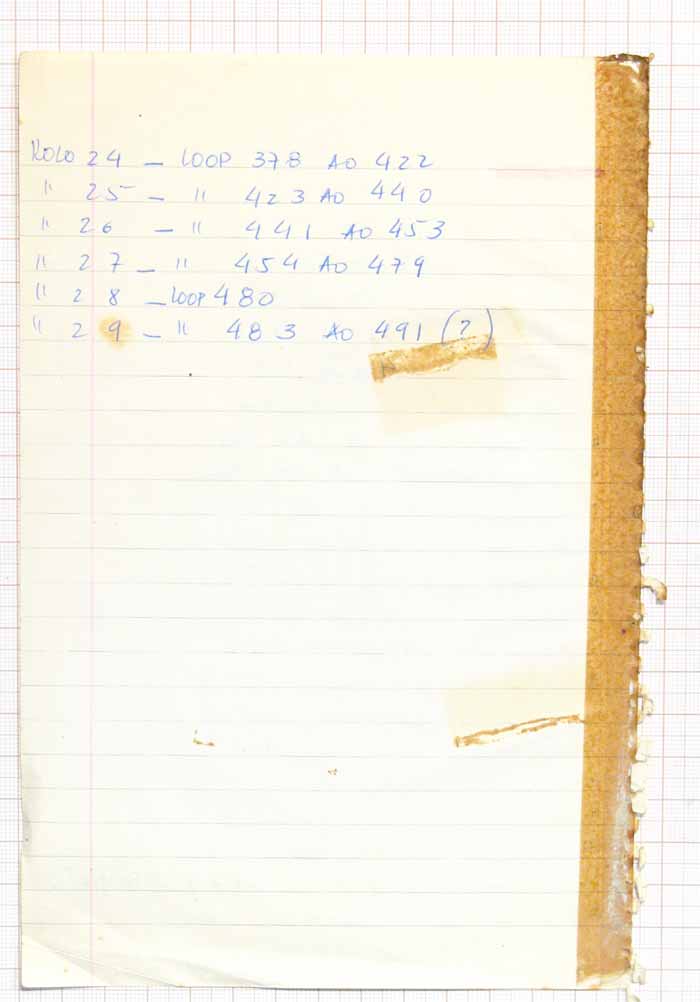 ROLO 24 - LOOP 378 AO 422
" 25 - " 423 AO 440
" 26 - " 441 AO 453
" 27 - " 454 AO 479
" 28 - LOOP 480
" 29 - " 483 AO 491 (?)